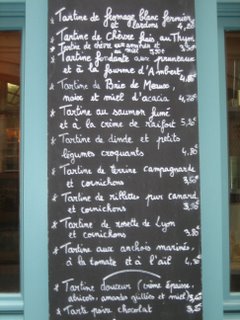 * Tartine de fromage blanc fermier
et lardons 4,20
* Tartine de Chèvre frais au Thym
3,80€
* Tartine de chèvre aux
et miel 3,90€
* Tartine fondante aux pruneaux
et à la fourme d'Ambert
4,80€
* Tartine de Brie de Meaux,
noix et miel d'acacia 4,20€
* Tartine au saumon fumé
et à la crème de raifort 5,20€
* Tartine de dinde et petits
légumes croquants 4,80€
* Tartine de terrine campagnarde
et cornichons 3,80€
* Tartine de rillettes pur canard
et cornichons 3,90€
* Tartine de rosette de Lyon
et cornichons 3,80€
* Tartine aux anchois marinés,
à la tomate et à l'ail 4,30€
* Tartine douceurs (crème épaisse,
abricots, amandes grillées et miel) 3,60€
* Tarte poire chocolat 3,80€